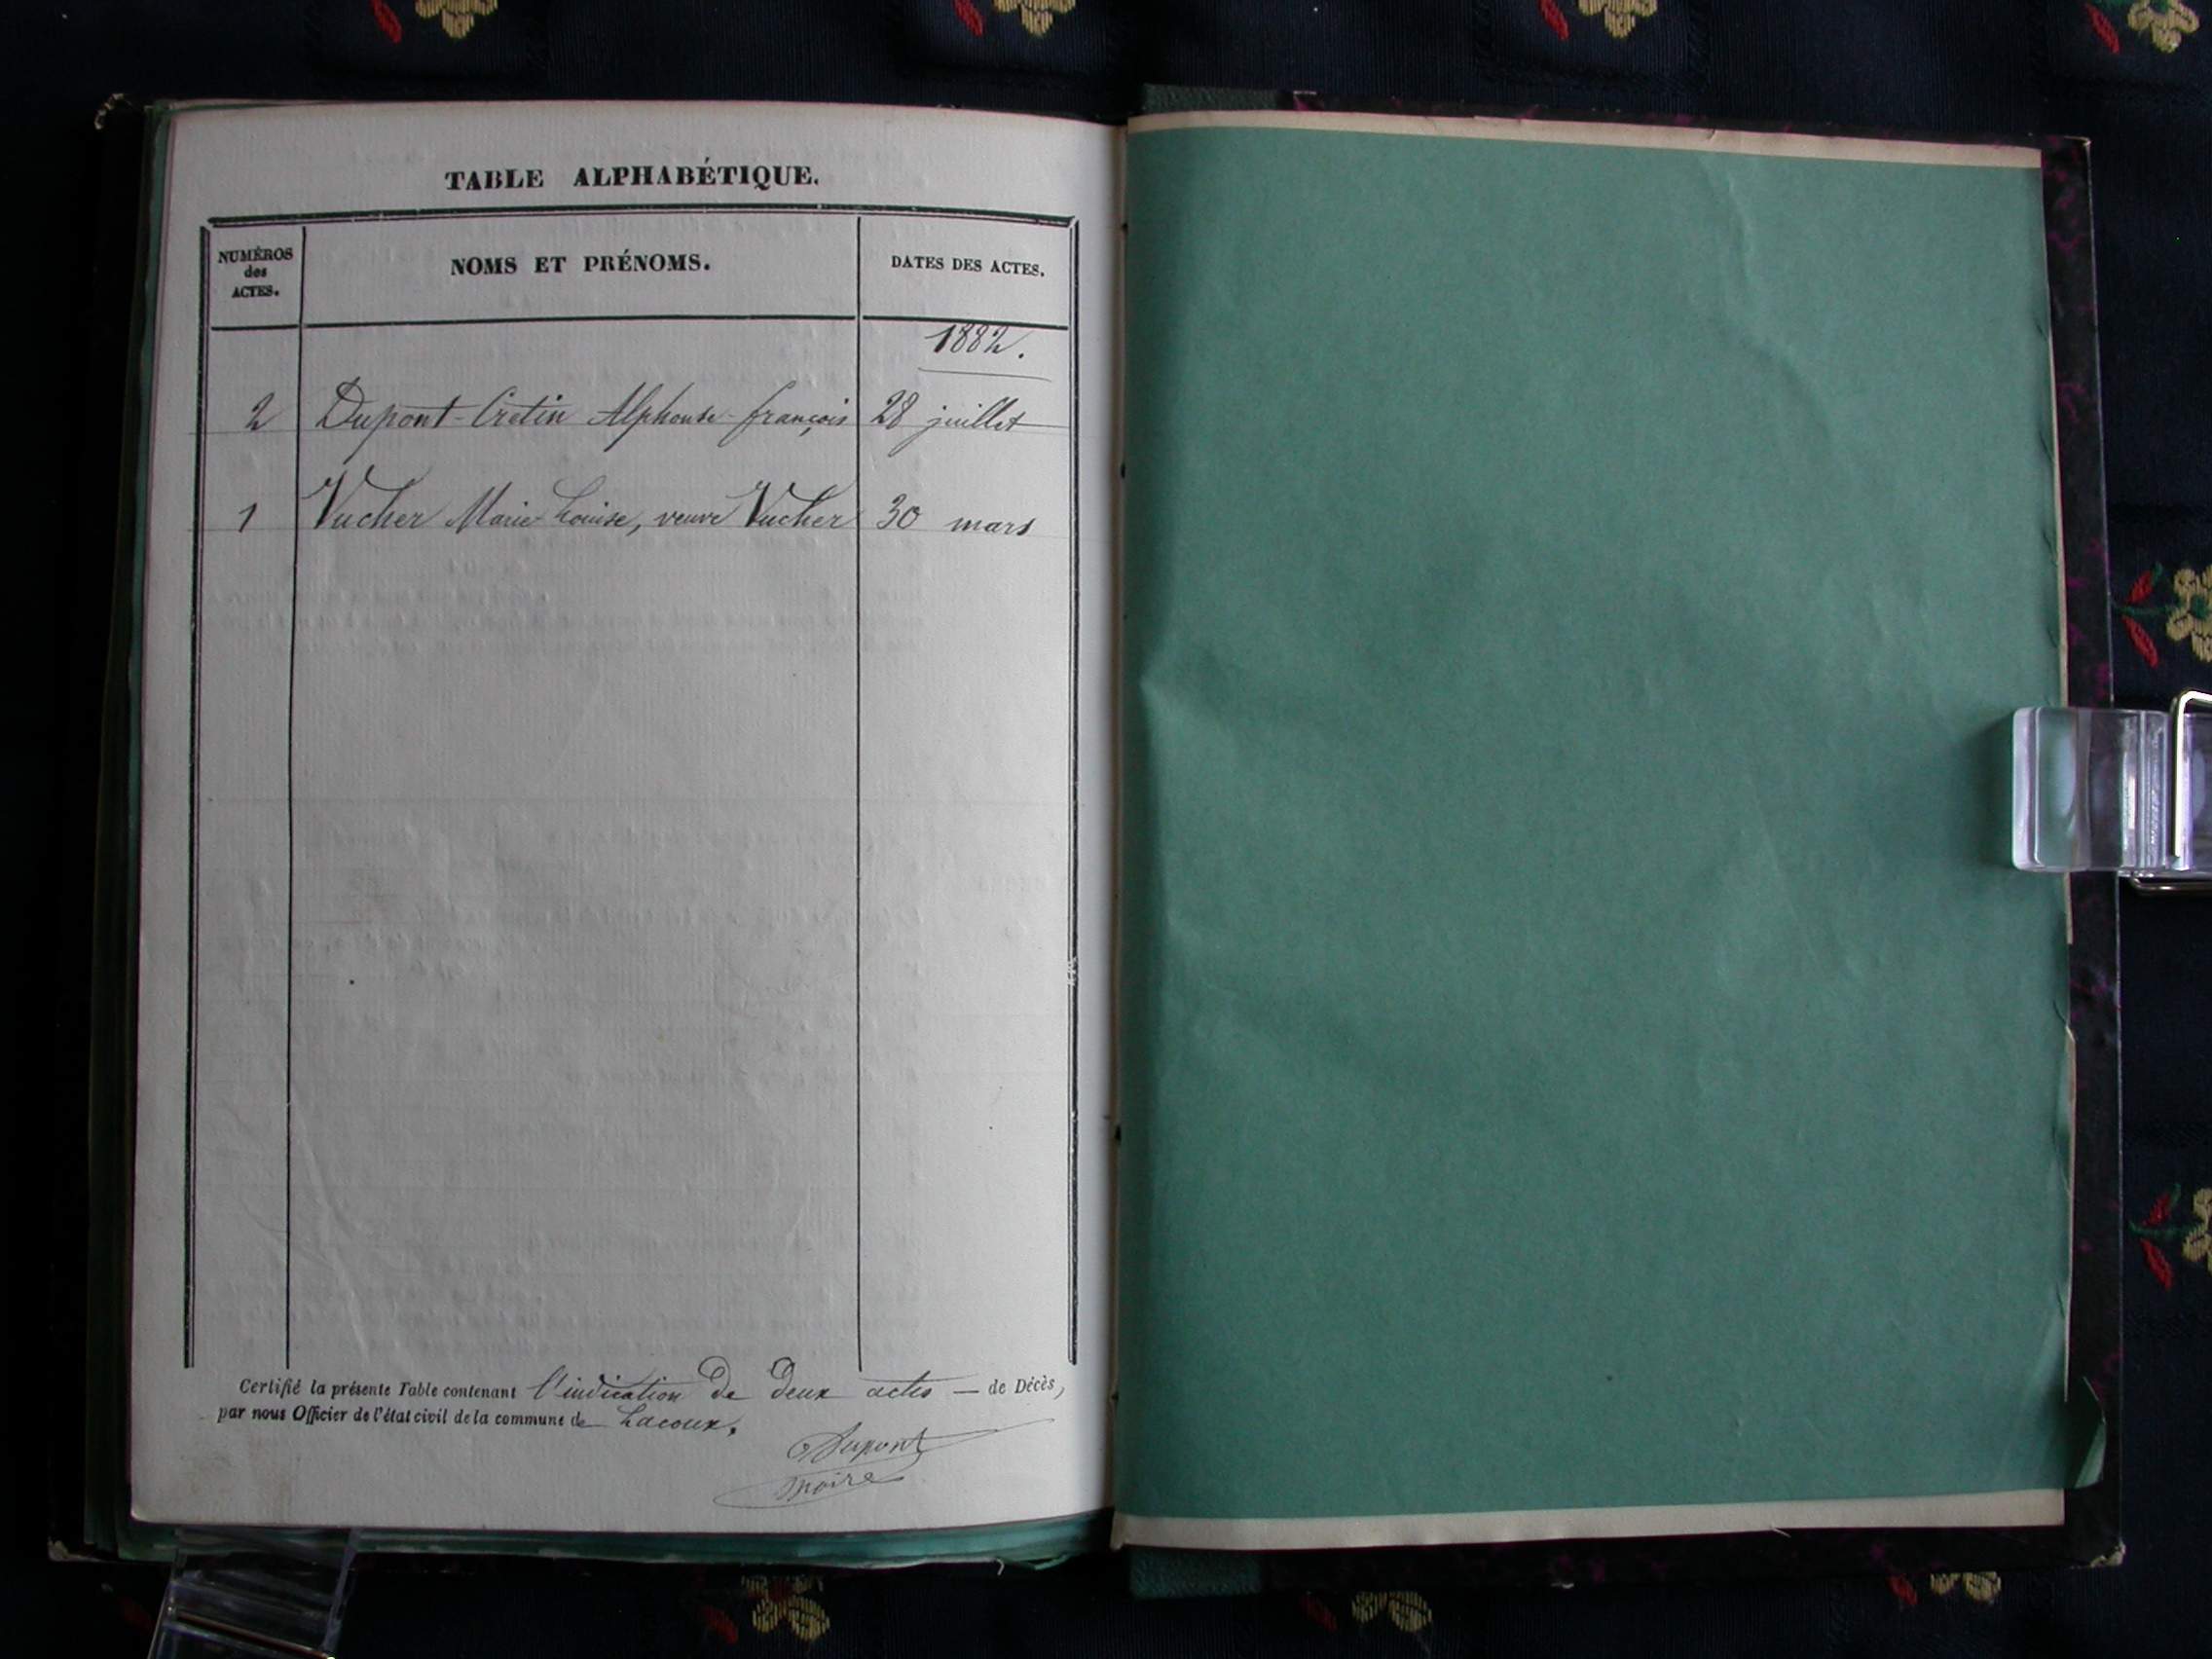 TABLE ALPHABÉTIQUE.
NUMÉROS
des
ACTES.
NOMS ET PRÉNOMS.
DATES DES ACTES.
1882.
2 Dupont-Cretin Alphonse-françois 28 juillet
1 Vucher Marie Louise, veuve Vucher 30 mars
Certifié la présente Table contenant l'indication de deux actes — de Décès,
par nous Officier de l'état civil de la commune de Lacoux.
Dupont
maire